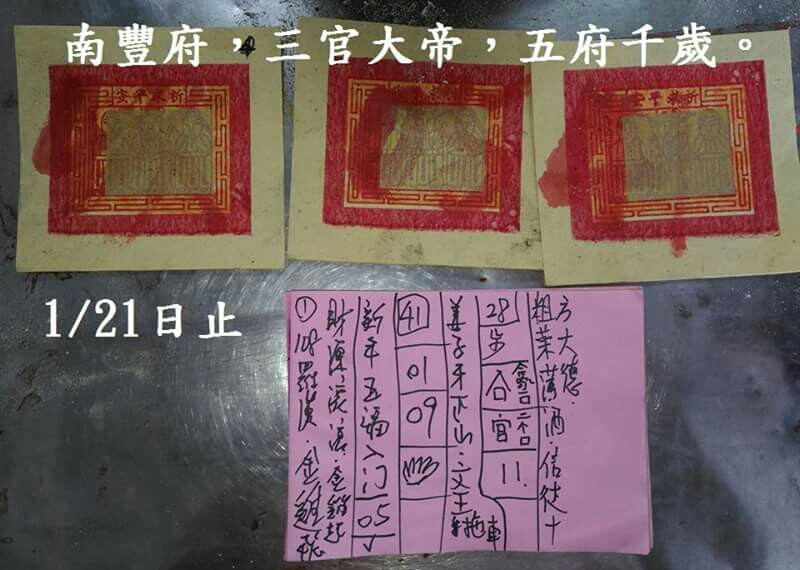 南豐府，三官大帝，五府千歲。
祈求平安
祈求平安
1/21日止
方大德．
粗菜薄酒．信徒十
28 步 合 官 11.
姜子牙下山．文王拖車
41 01 09
新年五福入门 05
財源滾滾．金雞起
① 108羅漢．金雞